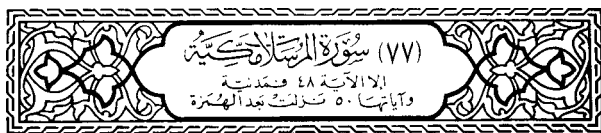 (٧٧) سورة المرسلات مكية
إلا الآية ٤٨ فمدنية
وآياتها ٥٠ نزلت بعد الهمزة